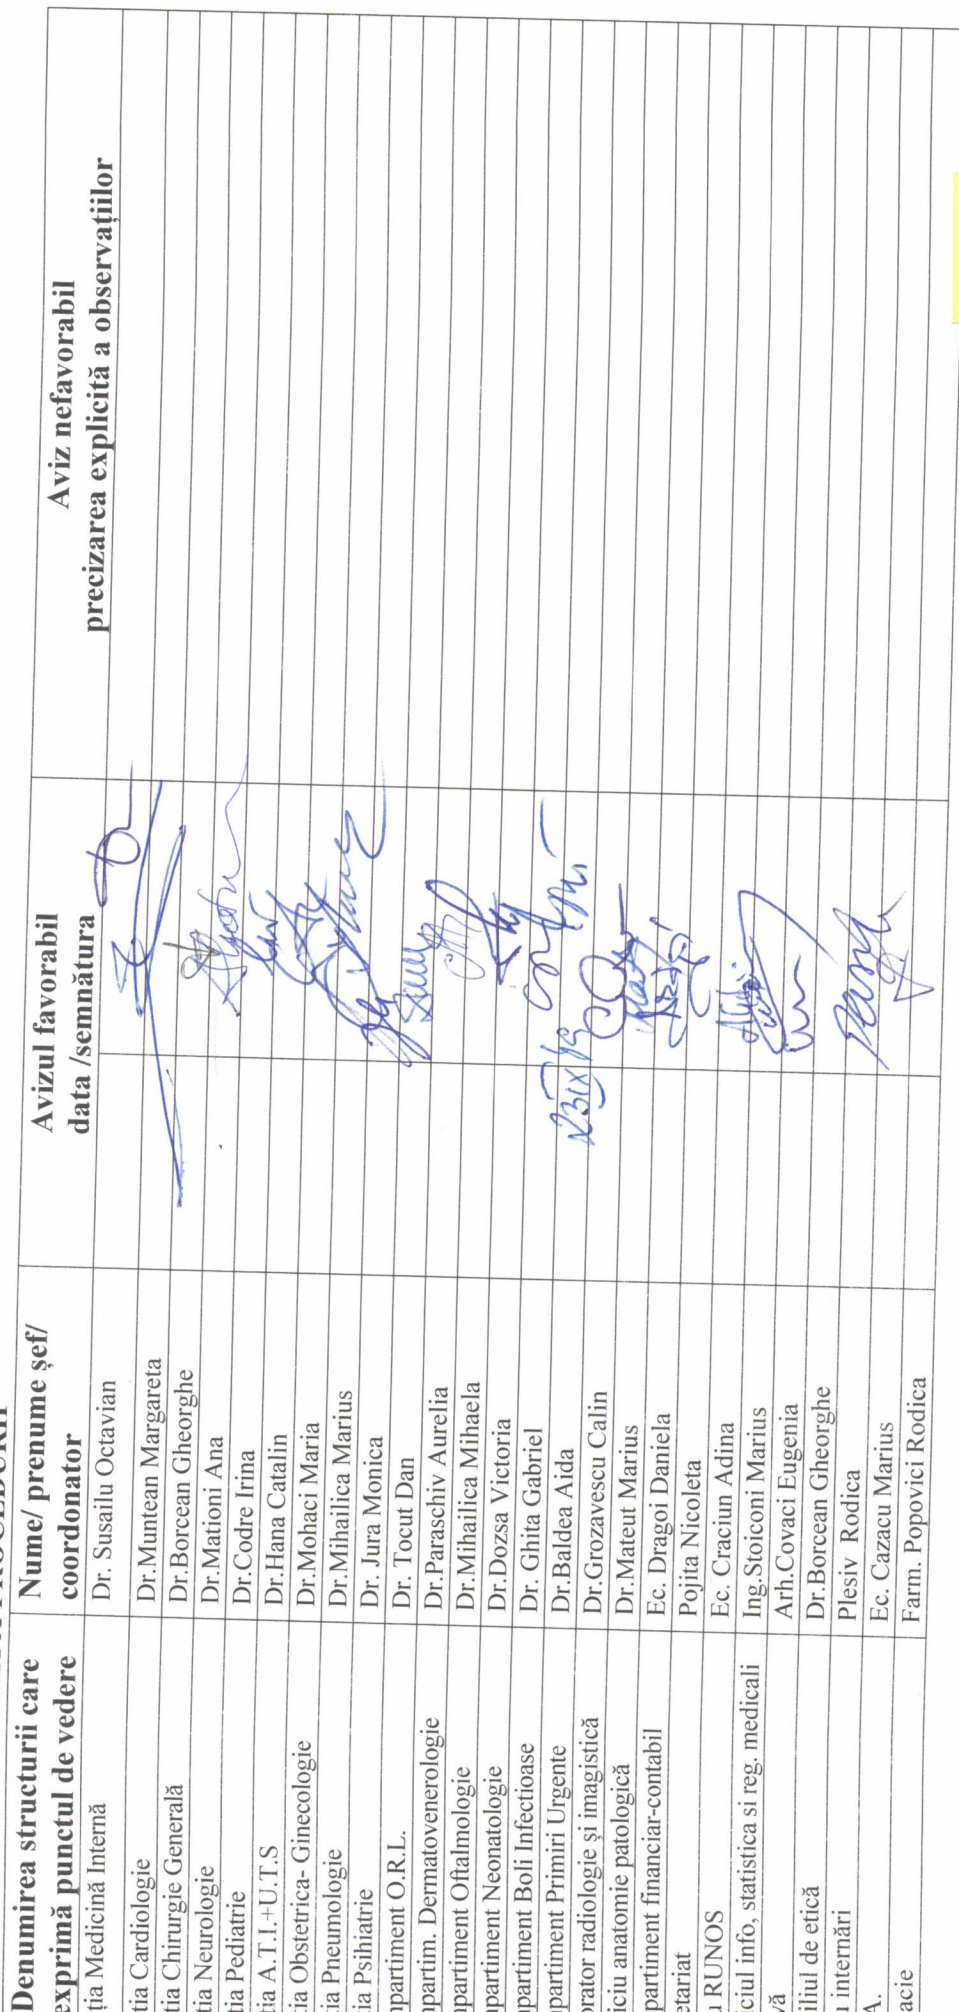 Denumirea structurii care exprimă punctul de vedere
Nume/ prenume șef/ coordonator
Avizul favorabil data /semnătura
Aviz nefavorabil precizarea explicită a observațiilor
ția Medicină Internă Dr. Susailu Octavian
tia Cardiologie Dr.Muntean Margareta
tia Chirurgie Generală Dr.Borcean Gheorghe
tia Neurologie Dr.Mationi Ana
tia Pediatrie Dr.Codre Irina
tia A.T.I.+U.T.S Dr.Hana Catalin
tia Obstetrica- Ginecologie Dr.Mohaci Maria
tia Pneumologie Dr.Mihailica Marius
tia Psihiatrie Dr. Jura Monica
npartiment O.R.L. Dr. Tocut Dan
npartim. Dermatovenerologie Dr.Paraschiv Aurelia
npartiment Oftalmologie Dr.Mihailica Mihaela
npartiment Neonatologie Dr.Dozsa Victoria
npartiment Boli Infectioase Dr. Ghita Gabriel
npartiment Primiri Urgente Dr.Baldea Aida
orator radiologie și imagistică Dr.Grozavescu Calin
iciu anatomie patologică Dr.Mateut Marius
partiment financiar-contabil Ec. Dragoi Daniela
etariat Pojita Nicoleta
u RUNOS Ec. Craciun Adina
ciul info, statistica si reg. medicali Ing.Stoiconi Marius
vă Arh.Covaci Eugenia
iliul de etică Dr.Borcean Gheorghe
u internări Plesiv Rodica
A. Ec. Cazacu Marius
acie Farm. Popovici Rodica